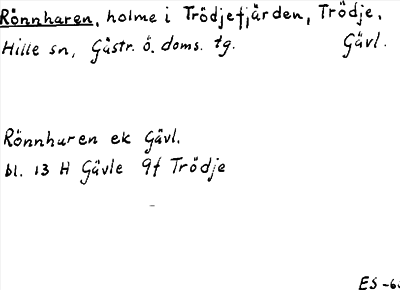 Rönnharen, holme i Trödjefjärden, Trödje,
Hille sn, Gästr. ö. doms. tg. Gävl.
Rönnharen ek Gävl.
bl. 13 H Gävle 9f Trödje